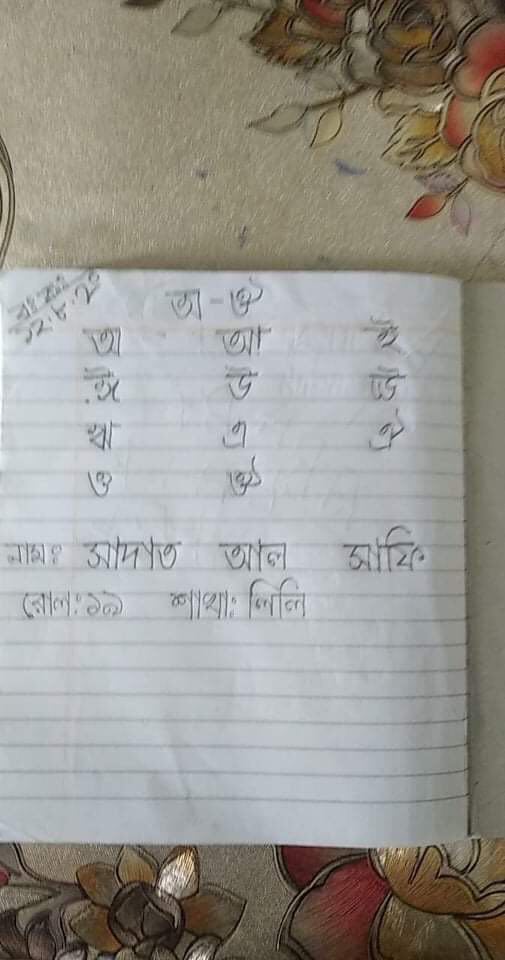 বাংলা
১২.৮.২৩
অ-ঔ
অ আ ই
ঈ উ ঊ
ঋ এ ঐ
ও ঔ
নামঃ সাদাত আল সাফি
রোল:১৯ শাখা: লিলি